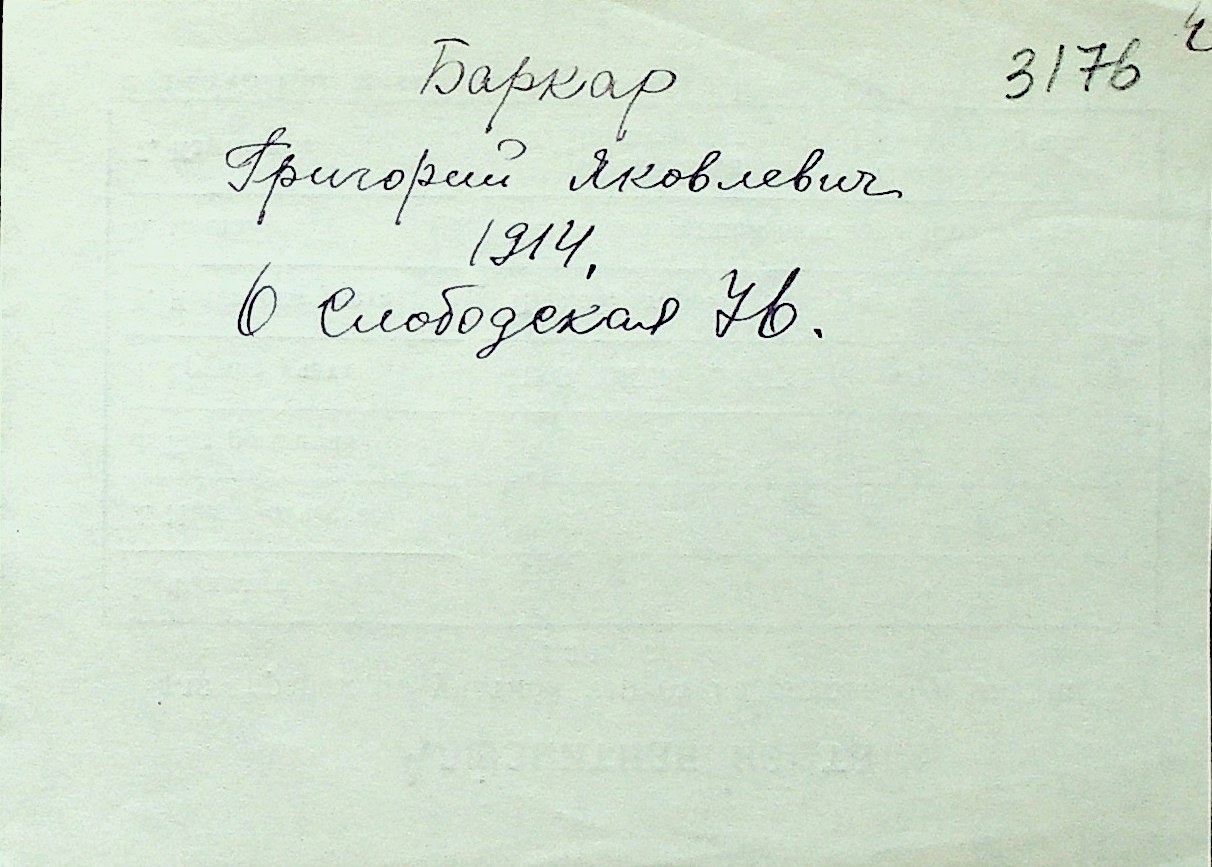 Баркар 3176
Григорий Яковлевич
1914,
6 Слободская 7в.